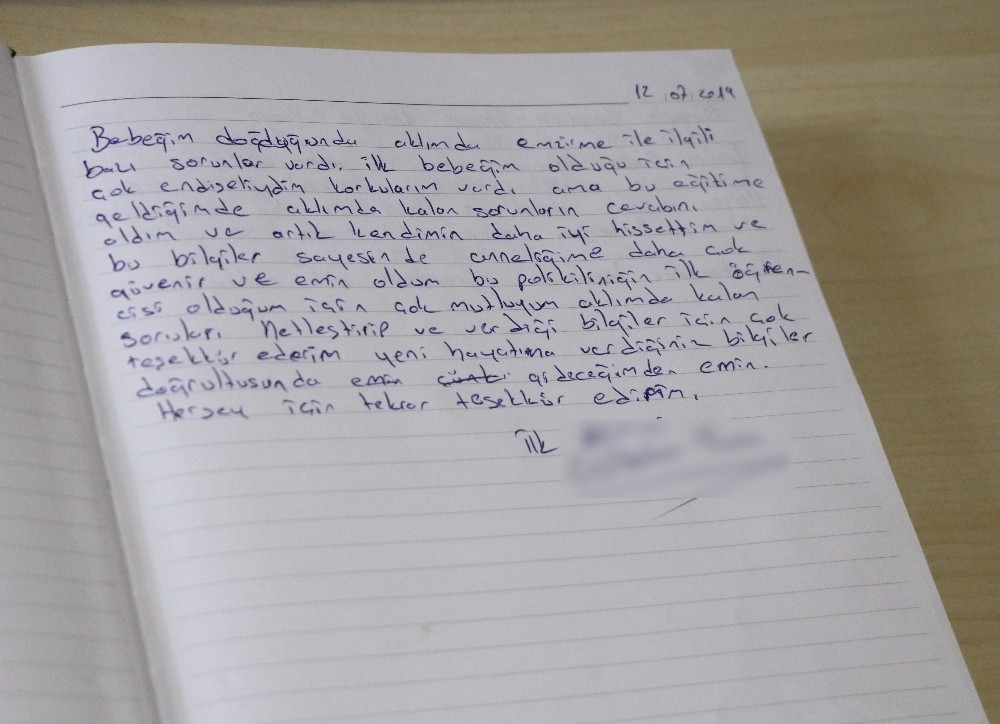 12.07.2019
Bebeğim doğduğunda aklımda emzirme ile ilgili
bazı sorunlar vardı. ilk bebeğim olduğu için
çok endişeliydim korkularım vardı ama bu eğitime
geldiğimde aklımda kalan sorunların cevabını
aldım ve artık kendimin daha iyi hissettim ve
bu bilgiler sayesinde anneliğime daha çok
güvenir ve emin oldum bu polikiliniğin ilk öğren-
cisi olduğum için çok mutluyum aklımda kalan
soruları netleştirip ve verdiği bilgiler için çok
teşekkür ederim yeni hayatıma verdiğiniz bilgiler
doğrultusunda emin gideceğimden emin.
Herşey için tekrar teşekkür ederim.
ilk